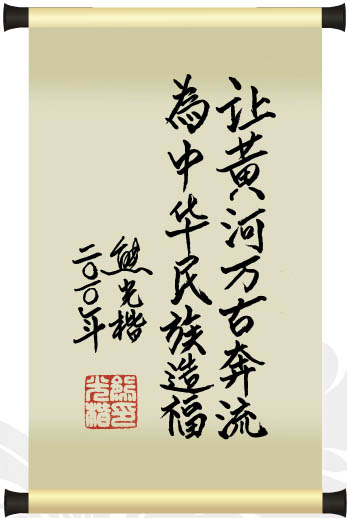 让黄河万古奔流
為中华民族造福
熊光楷
二〇一〇年
熊光楷印